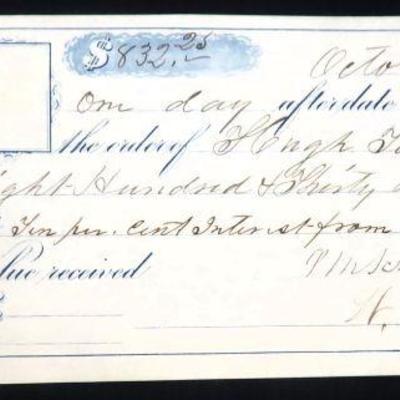 $832.25
Octo
One day after date
the order of Hugh
ight Hundred & Thirty
Ten per. Cent Interest from
lue received